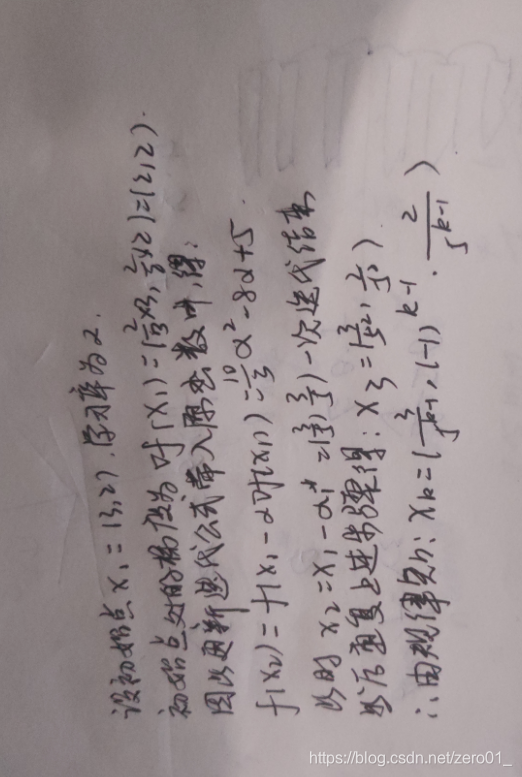 设初始点 x₁=(3,2). 学习率为α.
初始点处的梯度为 ∇f(x₁)=(2/3×3, 2/2×2)=(2,2).
因此更新迭代公式带入原函数中,得:
f(x₂)=f(x₁-α∇f(x₁))=10/3α²-8α+5.
此时 x₂=x₁-α₁* =(3/5, 2/5) 一次迭代结束
然后重复上述步骤得: x₃=(3/5², 2/5²)
∴由规律知: xₖ=(3/5ᵏ⁻¹, (-1)ᵏ⁻¹·2/5ᵏ⁻¹)
https://blog.csdn.net/zero01_